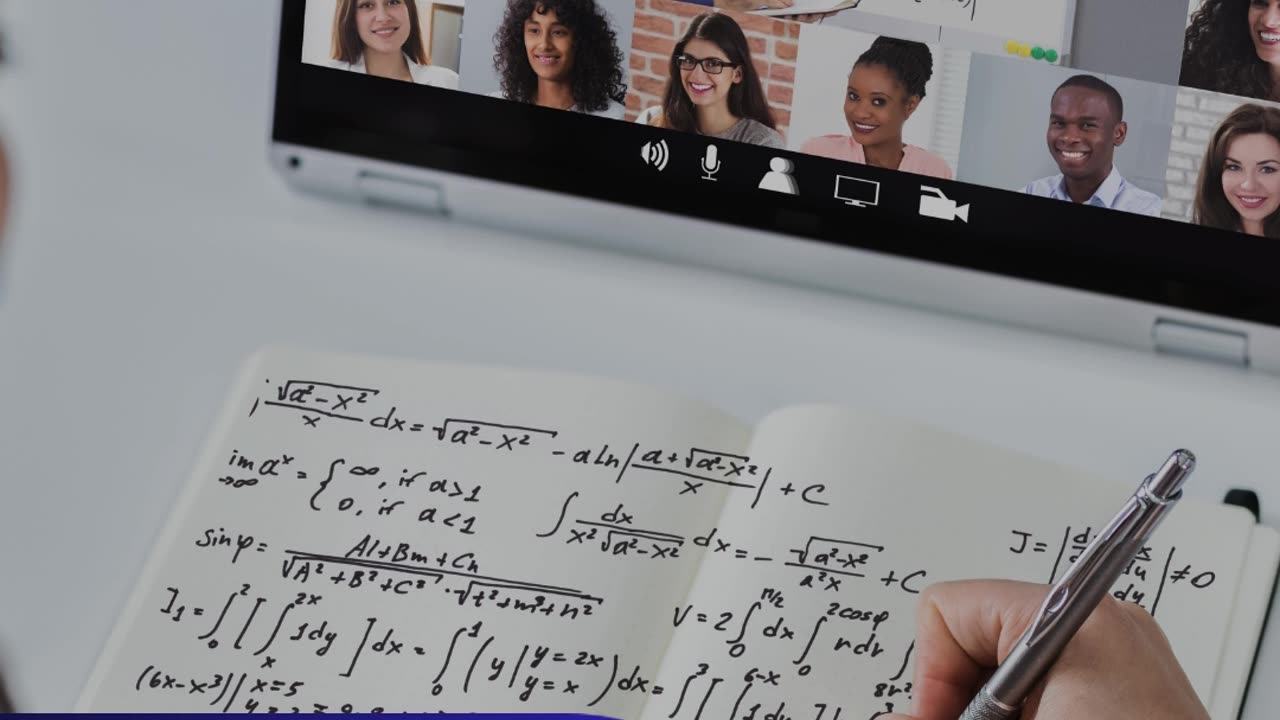 ∫ √(a²-x²)/x dx = √(a²-x²) - a ln|(a+√(a²-x²))/x| + C
lim x→∞ aˣ = { ∞, if a>1
0, if a<1
∫ dx/(x²√(a²-x²)) dx = - √(a²-x²)/(a²x) + C
J = | ≠ 0
sin φ = (Al+Bm+Cn)/(√(A²+B²+C²)·√(t²+m²+n²))
I₁ = ∫₀² [ ∫ₓ²ˣ 1dy ] dx = ∫₀¹ (y | y=2x y=x) dx =
V = 2 ∫₀^(π/2) dx ∫₀^(2cosφ) r dr ∫
(6x-x³)| x=5